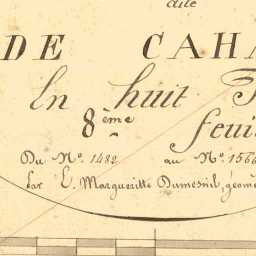 dite
DE CAHA
En huit F
8ème
feui
Du No. 1482 au No. 1566
Par L. Margueritte Dumesnil, géomè